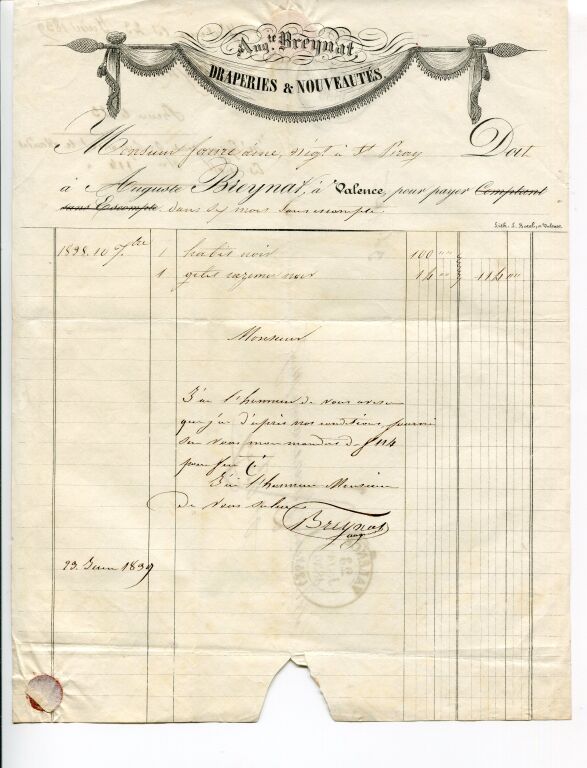 Aug.te Breynat,
DRAPERIES & NOUVEAUTÉS
Monsieur faure ainé, négt à St Peray Doit
à Auguste Breynat, à Valence, pour payer Comptant
sans Escompte. dans six mois sans escompte.
Lith. L. Borel, a Valence.
1838. 10 7bre 1 habit noir 100 " "
1 gilet cazimir noir 14 " " 114 " "
Monsieur
J'ai l'honneur de vous aviser
que j'ai d'après nos conditions fourni
sur vous mon mandat de f 114
pour fin
J'ai l'honneur Monsieur
De vous saluer
Breynat
aug
23. 1839
VALENCE